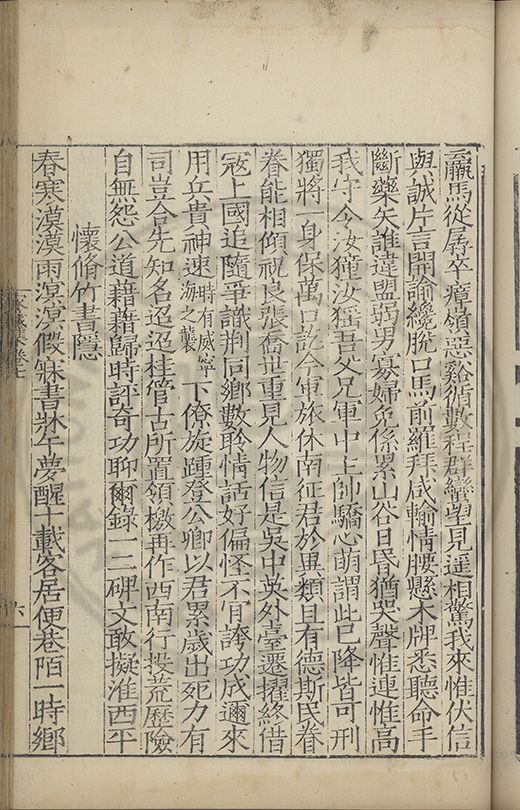 羸馬從孱卒瘴嶺惡谿循數程群蠻望見遥相驚我來惟伏信
與誠片言開諭纔脱口馬前羅拜咸輸情腰懸木牌悉聽命手
斷藥矢誰違盟弱男寡婦免係累山谷日昃猶哭聲惟連惟高
我守令汝獞汝猺吾父兄軍中主帥驕心萌謂此已降皆可刑
獨將一身保萬口訖今軍旅休南征君於異類且有德斯民眷
眷能相傾祝良張喬世重見人物信是吳中英外臺遷擢終借
冦上國追隨爭識荆同鄉數聆情話好偏怪不肎誇功成邇來
用兵貴神速時有咸寧海之襲下僚旋踵登公卿以君累歲出死力有
司豈合先知名迢迢桂管古所置領檄再作西南行投荒歷險
自無怨公道藉藉歸時評奇功聊爾錄一二碑文敢擬淮西平
懷脩竹書隱
春寒漠漠雨溟溟假寐書牀午夢醒十載客居便巷陌一時鄉
六